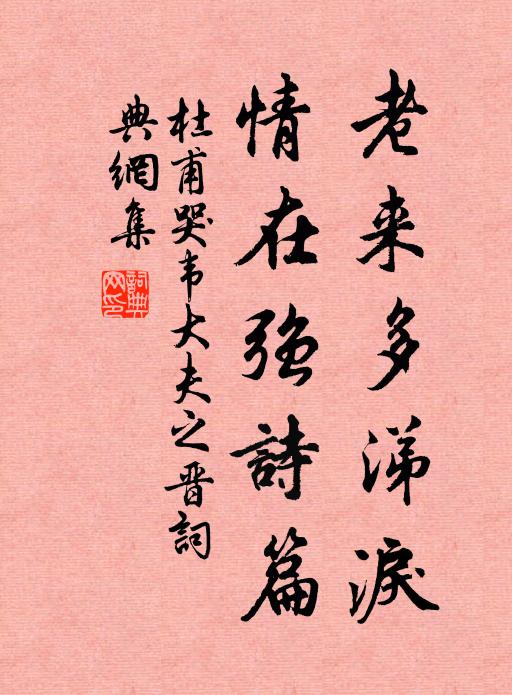 老来多涕淚
情在強詩篇
杜甫哭韦大夫之晋詞
典網集
詞典
网印